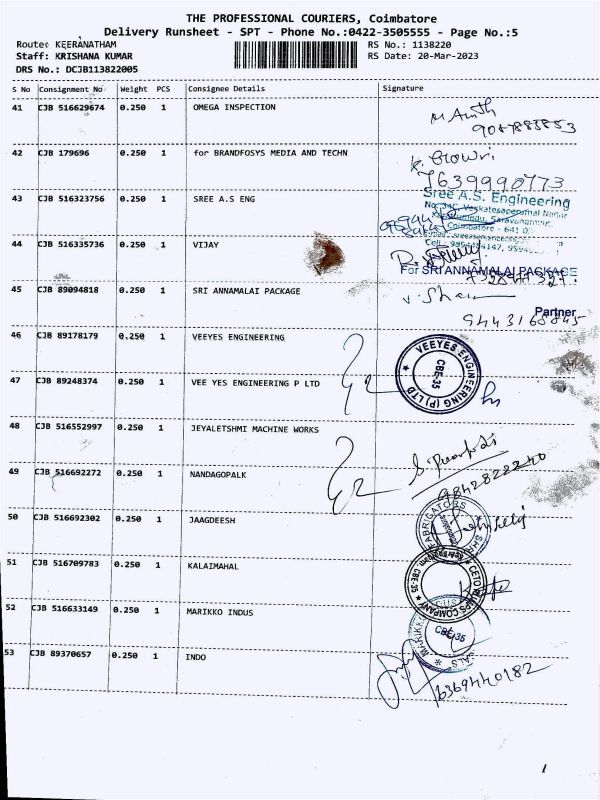 THE PROFESSIONAL COURIERS, Coimbatore
Delivery Runsheet - SPT - Phone No.:0422-3505555 - Page No.:5
Route: KEERANATHAM RS No.: 1138220
Staff: KRISHANA KUMAR RS Date: 20-Mar-2023
DRS No.: DCJB113822005
S No Consignment No Weight PCS Consignee Details Signature
41 CJB 516629674 0.250 1 OMEGA INSPECTION
42 CJB 179696 0.250 1 for BRANDFOSYS MEDIA AND TECHN
7639990773
43 CJB 516323756 0.250 1 SREE A.S ENG
Sree A.S. Engineering
44 CJB 516335736 0.250 1 VIJAY
For SRI ANNAMALAI PACKAGE
45 CJB 89094818 0.250 1 SRI ANNAMALAI PACKAGE
Partner
46 CJB 89178179 0.250 1 VEEYES ENGINEERING
VEEYES ENGINEERING (P) LTD
CBE-35
47 CJB 89248374 0.250 1 VEE YES ENGINEERING P LTD
48 CJB 516552997 0.250 1 JEYALETSHMI MACHINE WORKS
49 CJB 516692272 0.250 1 NANDAGOPALK
9842822240
50 CJB 516692302 0.250 1 JAAGDEESH
51 CJB 516709783 0.250 1 KALAIMAHAL
52 CJB 516633149 0.250 1 MARIKKO INDUS
53 CJB 89370657 0.250 1 INDO
6369440182
1